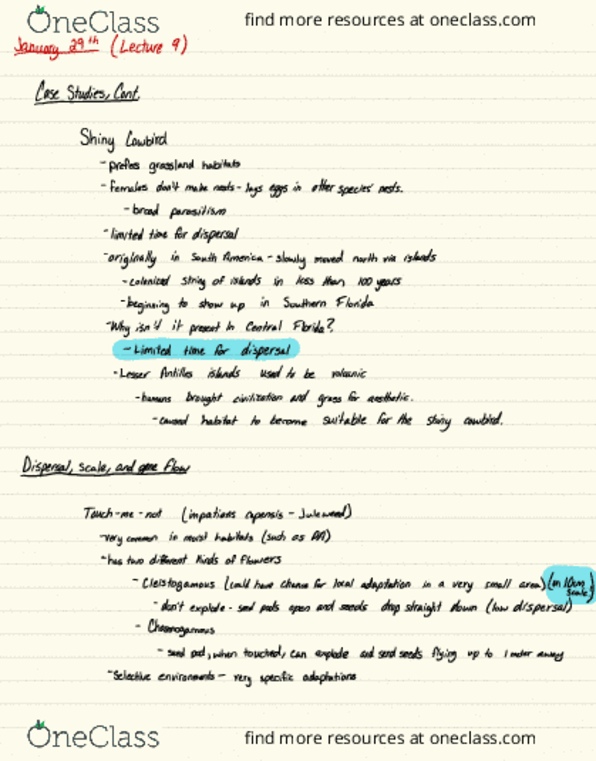 OneClass find more resources at oneclass.com
January 29th (Lecture 9)
Case Studies, Cont.
Shiny Cowbird
- prefers grassland habitats
- Females don't make nests - lays eggs in other species' nests.
- brood parasitism
- limited time for dispersal
- originally in South America - slowly moved north via islands
- colonized string of islands in less than 100 years
- beginning to show up in Southern Florida
- Why isn't it present in Central Florida?
- Limited time for dispersal
- Lesser Antilles islands used to be volcanic
- humans brought civilization and grass for aesthetic.
- caused habitat to become suitable for the shiny cowbird.
Dispersal, scale, and gene flow
Touch-me-not (impatiens capensis - Jewelweed)
- very common in moist habitats (such as
- has two different kinds of flowers
- Cleistogamous (could have chance for local adaptation in a very small area) (on 10cm scale)
- don't explode - seed pods open and seeds drop straight down (low dispersal)
- Chasmogamous
- seed pod, when touched, can explode and send seeds flying up to 1 meter away
- Selective environments - very specific adaptations
OneClass find more resources at oneclass.com